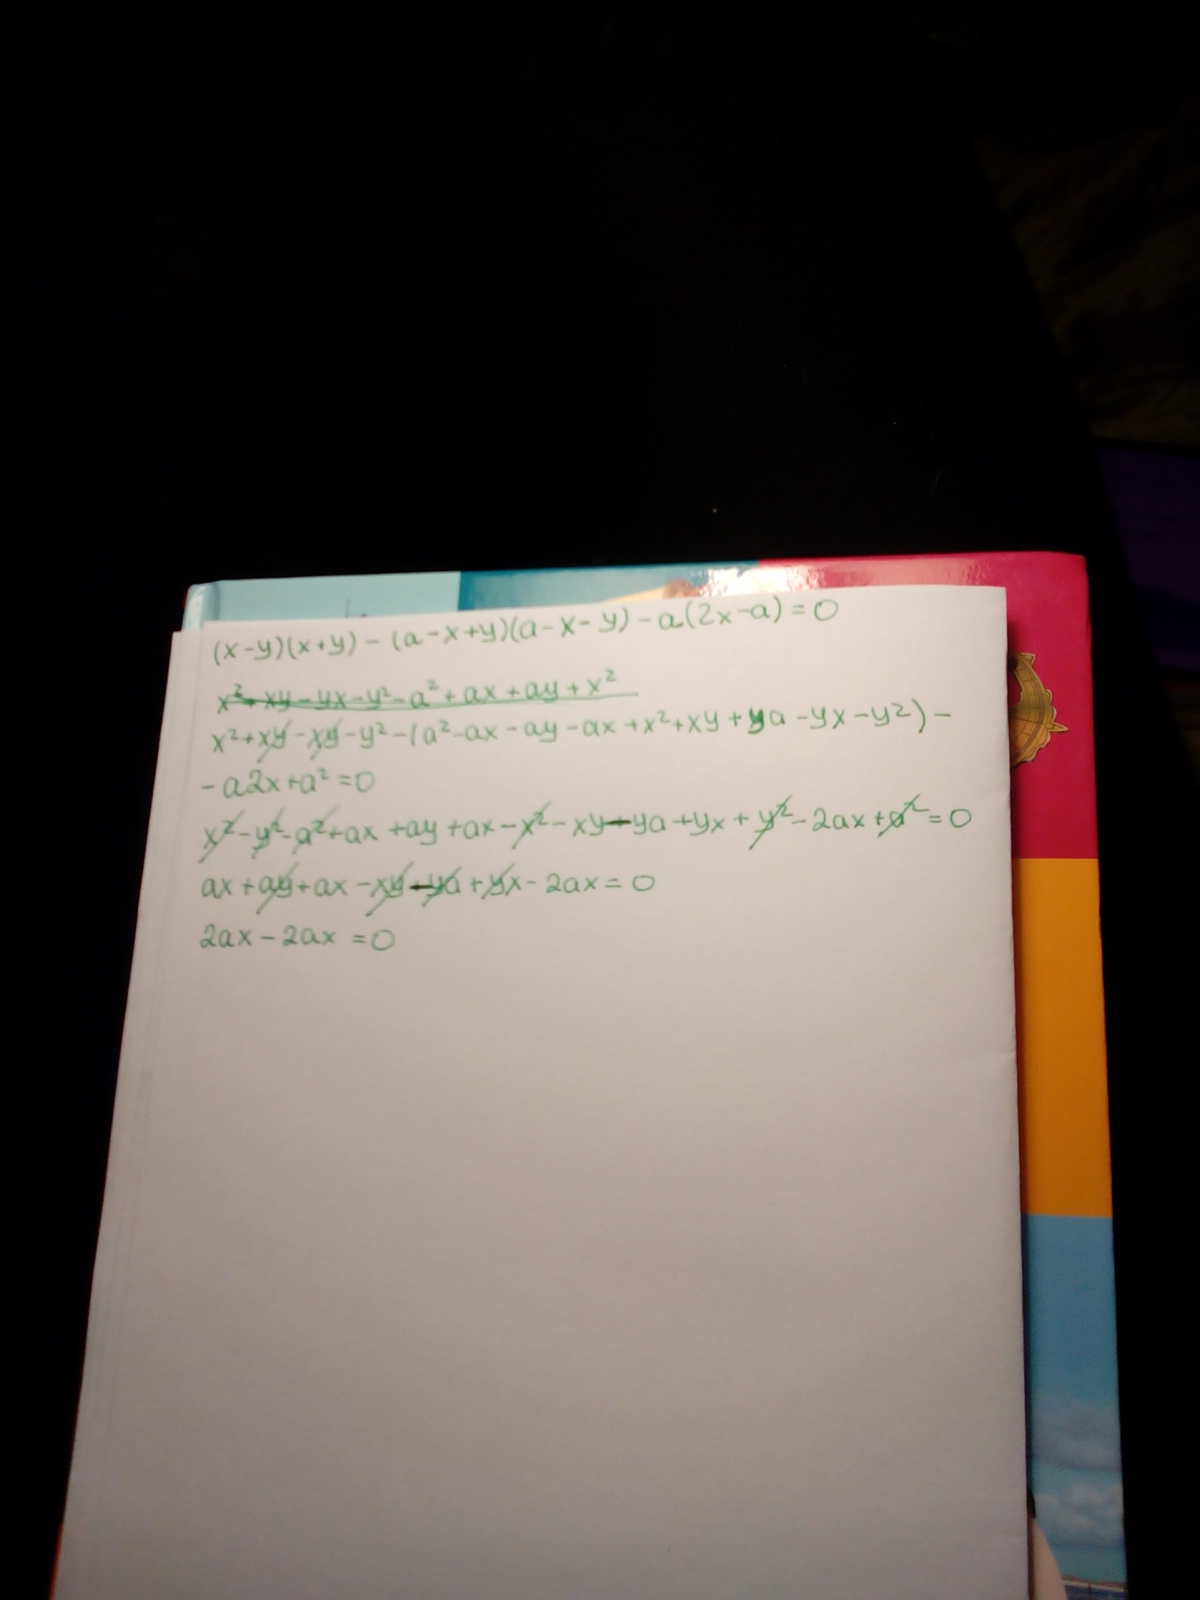 (x-y)(x+y) - (a-x+y)(a-x-y) - a(2x-a) = 0
x² + xy - yx - y² - a² + ax + ay + x²
x² + xy - xy - y² - (a² - ax - ay - ax + x² + xy + ya - yx - y²) -
- a2x + a² = 0
x² - y² - a² + ax + ay + ax - x² - xy - ya + yx + y² - 2ax + a² = 0
ax + ay + ax - xy - ya + yx - 2ax = 0
2ax - 2ax = 0